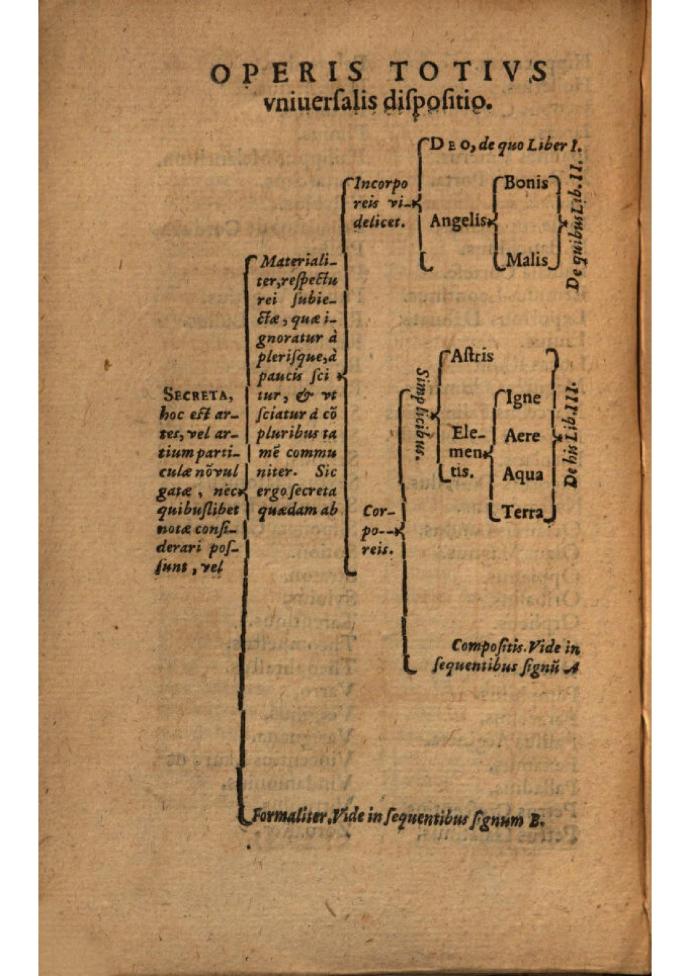 OPERIS TOTIVS
vniuerſalis diſpoſitio.
SECRETA,
hoc eſt ar-
tes, vel ar-
tium parti-
culæ nõvul
gatæ, nec
quibuſlibet
notæ conſi-
derari poſ-
ſunt, vel
Materiali-
ter, reſpectu
rei ſubie-
ctæ, quæ i-
gnoratur à
pleriſque, à
paucis ſci
tur, & vt
ſciatur à cõ
pluribus ta
mẽ commu
niter. Sic
ergo ſecreta
quædam ab
Incorpo
reis vi-
delicet.
DEO, de quo Liber I.
Angelis
Bonis
Malis
De quibus Lib. II.
Cor-
po-
reis.
Simplicibus.
Aſtris
Ele-
men-
tis.
Igne
Aere
Aqua
Terra
De his Lib. III.
Compoſitis. Vide in
ſequentibus ſignũ A
Formaliter, Vide in ſequentibus ſignum B.